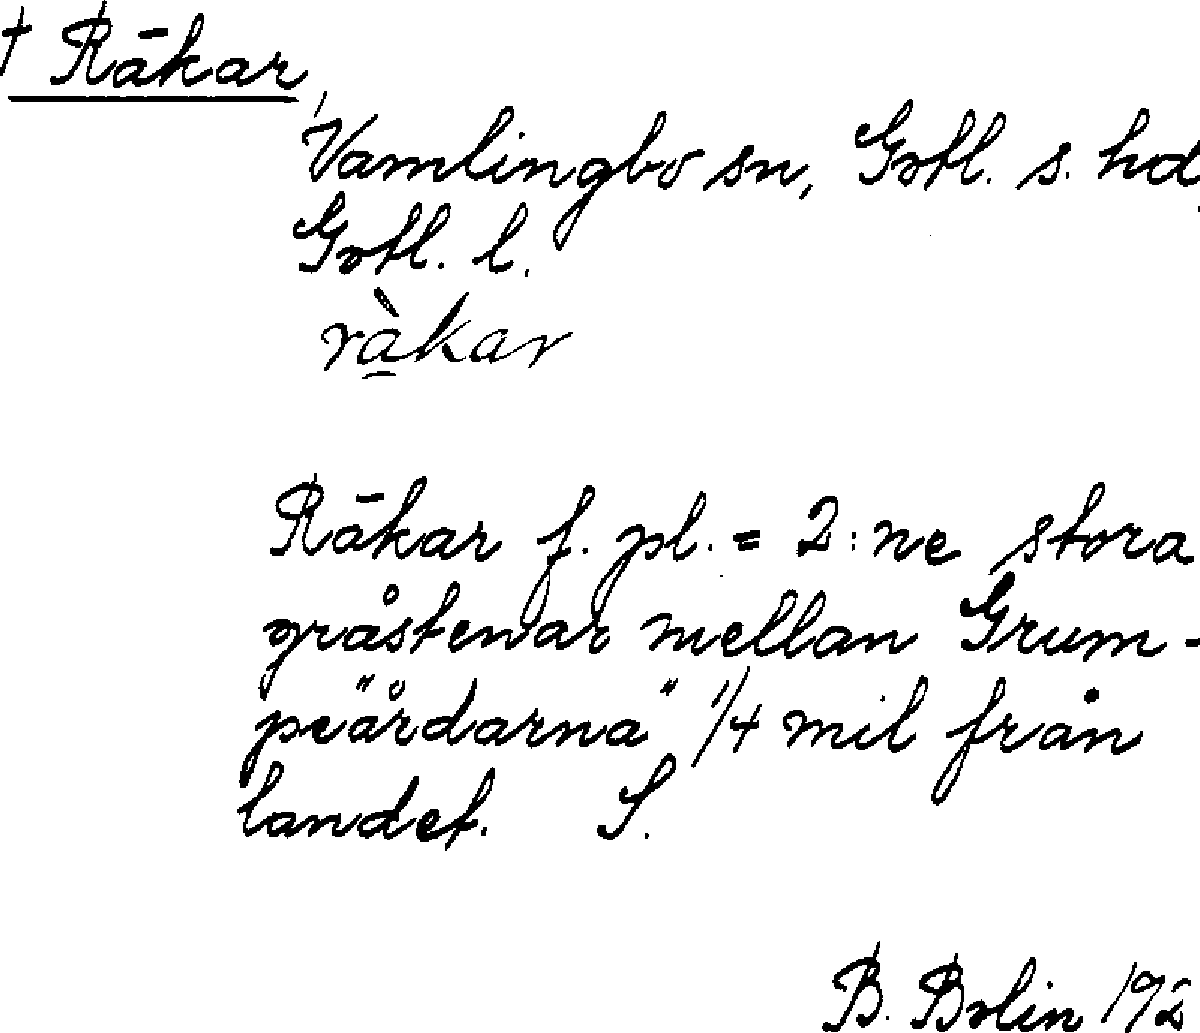 † Rākar
Vamlingbo sn, Gotl. s. hd,
Gotl. l.
rà̱kar
Rākar f. pl. = 2:ne stora
gråstenar mellan Grum-
peärdarna" 1/4 mil från
landet. S.
B. Bolin 192